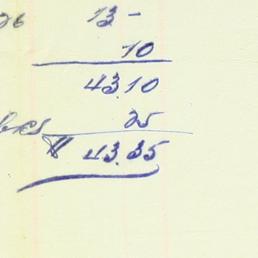 26 13 -
10
43.10
25
$ 43.35